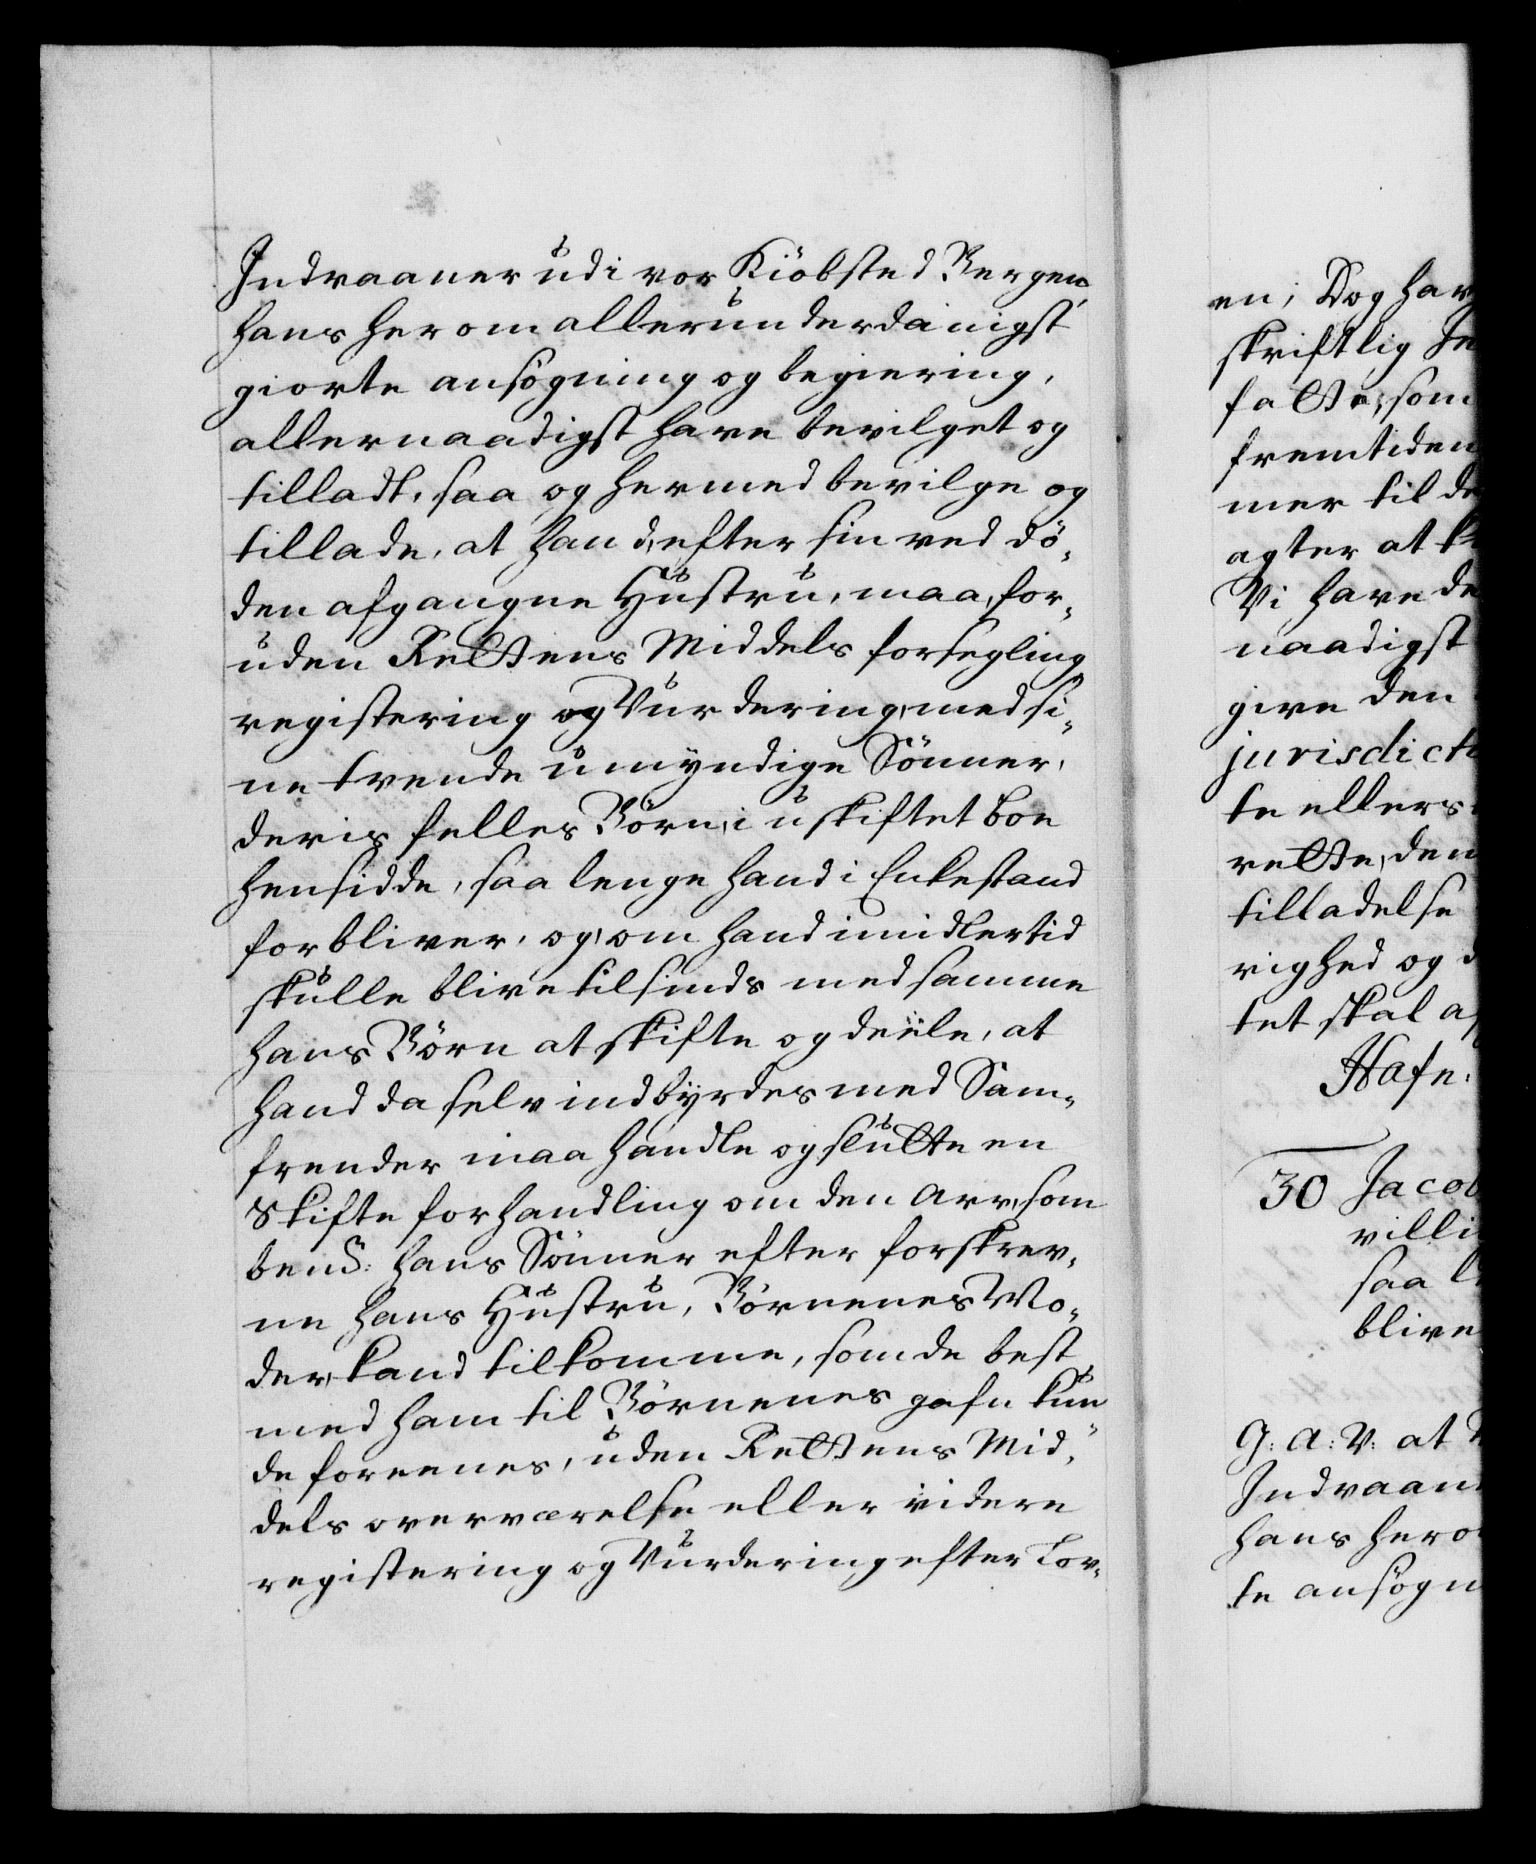 Indvaaner udi vor Kiöbsted Bergen
hans herom allerunderdanigst
giorte ansögning og begiering,
allernaadigst have bevilget og
tilladt, saa og hermed bevilge og
tillade, at hand, efter sin ved dö-
den afgangne Hustru, maa, for-
uden Rettens Middels forsegling
registering og Vurdering, med si-
ne trende umyndige Sönner,
deris felles Börn, i uskiftet boe
hensidde, saa lenge hand i Enkestand
forbliver, og, om hand imidlertid
skulle blive tilsinds med samme
hans Börn at skifte og deele, at
hand da selv indbyrdes med Sam-
frender maa handle og slutte en
Skifte forhandling om den Arv, som
bemte: hans Sönner efter forskrev-
ne hans Hustru, Börnenes Mo-
der, kand tilkomme, som de best
med ham til Börnenes gafn kun-
de foreenes, uden Rettens Mid-
dels overværelse eller videre
registering og Vurdering efter Lov-
en; Dog hav
skriftlig
falte, som
fremtiden
mer til de
agter at
Vi have de
naadigst
give den
jurisdict
te ellers
rette, den
tilladelse
righed og d
tet skal a
Hafn:
30 Jacob
villi
saa l
blive
G: A: V: at
Indvaan
hans hero
te ansögn